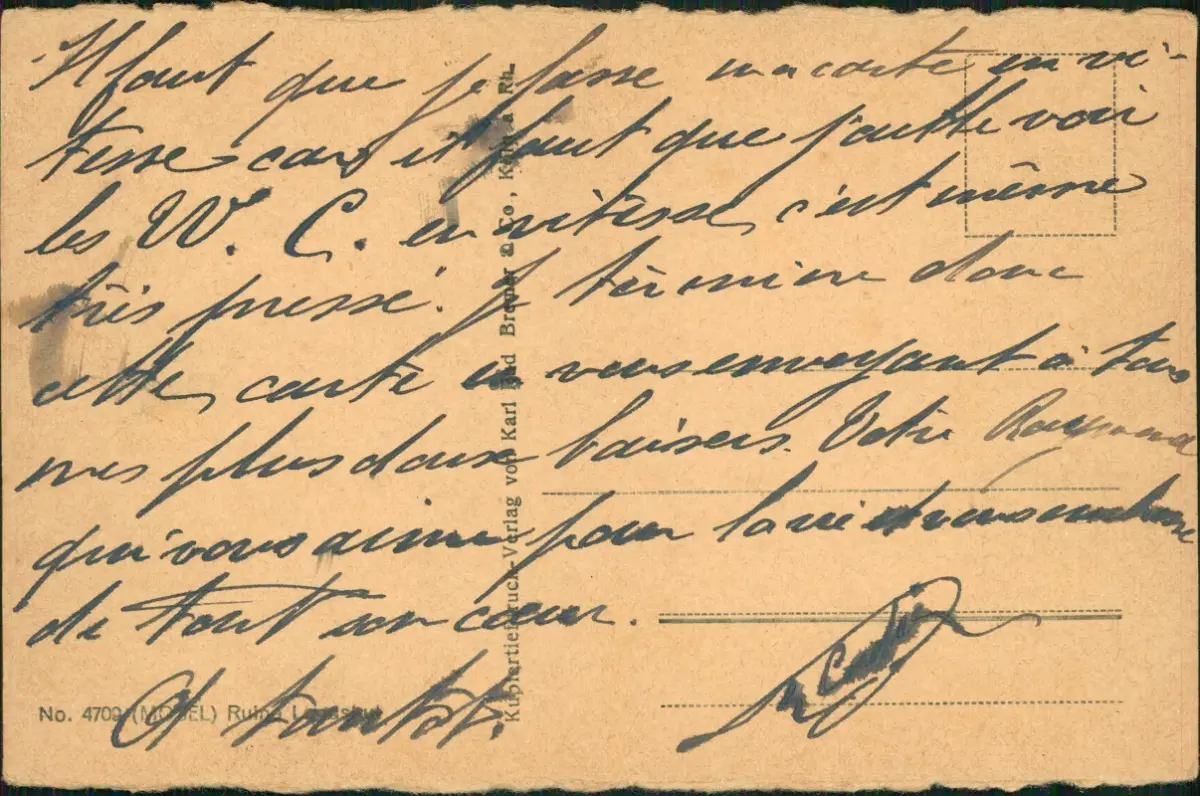 Il faut que je fasse ma carte en vi-
tesse car il faut que j'aille voir
les W. C. en vitesse, c'est même
très pressé. Je termine donc
cette carte en vous envoyant à tous
mes plus doux baisers. Votre Raymond
qui vous aime pour la vie et vous embrasse
de tout son cœur.
A bientôt.
No. 4709 (MODEL) Ruine
Kupfertiefdruck-Verlag von Karl und Brenner & Co., Köln a. Rh.